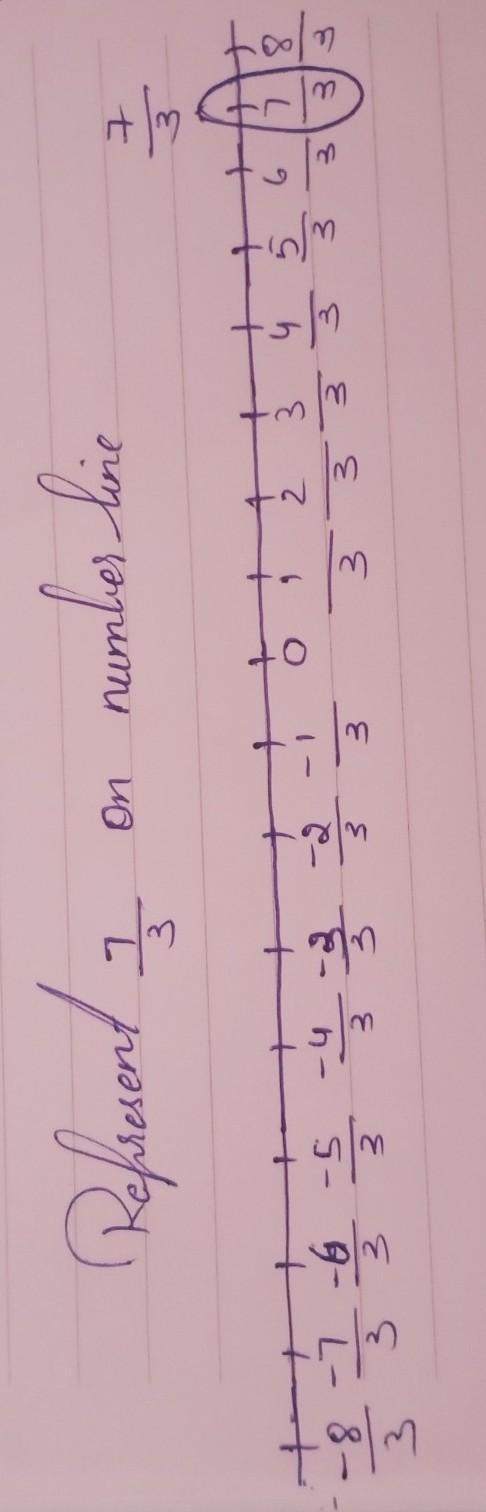 Represent 7/3 on number line 7/3
-8/3 -7/3 -6/3 -5/3 -4/3 -3/3 -2/3 -1/3 0 1/3 2/3 3/3 4/3 5/3 6/3 7/3 8/3